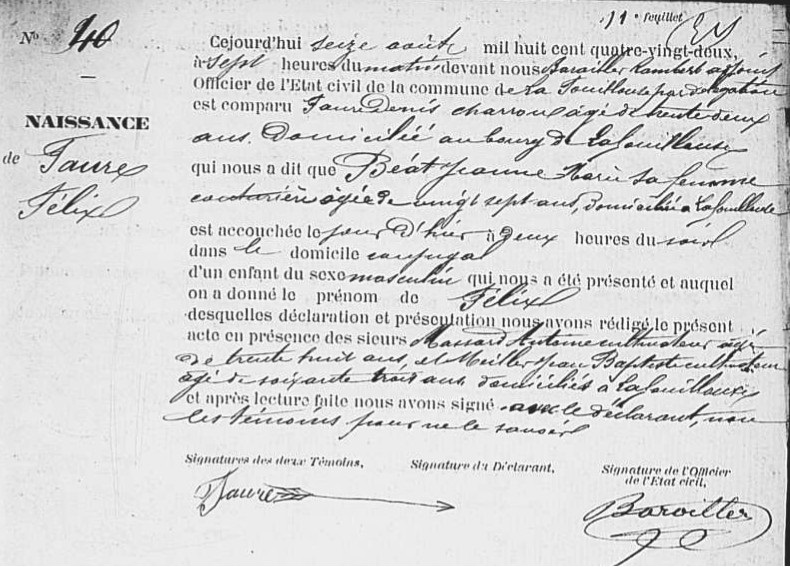 11e feuillet
No 40
NAISSANCE
de Faure
Félix
Cejourd'hui seize août mil huit cent quatre-vingt-deux,
à sept heures du matin devant nous Barailler Rambert adjoint
Officier de l'Etat civil de la commune de La Fouillouse par délégation
est comparu Faure Denis charron âgé de trente deux
ans. Domicilié au bourg de Lafouillouse
qui nous a dit que Béat Jeanne Marie sa femme
couturière âgée de vingt sept ans, domiciliée à Lafouillouse
est accouchée le jour d'hier à deux heures du soir
dans le domicile conjugal
d'un enfant du sexe masculin qui nous a été présenté et auquel
on a donné le prénom de Félix
desquelles déclaration et présentation nous avons rédigé le présent
acte en présence des sieurs Massard Antoine cultivateur âgé
de trente huit ans, et Meiller Jean Baptiste cultivateur
âgé de soixante trois ans domiciliés à Lafouillouse
et après lecture faite nous avons signé avec le déclarant, non
les témoins pour ne le savoir
Signatures des deux Témoins, Signature du Déclarant, Signature de l'Officier
de l'Etat civil,
Faure
Barailler